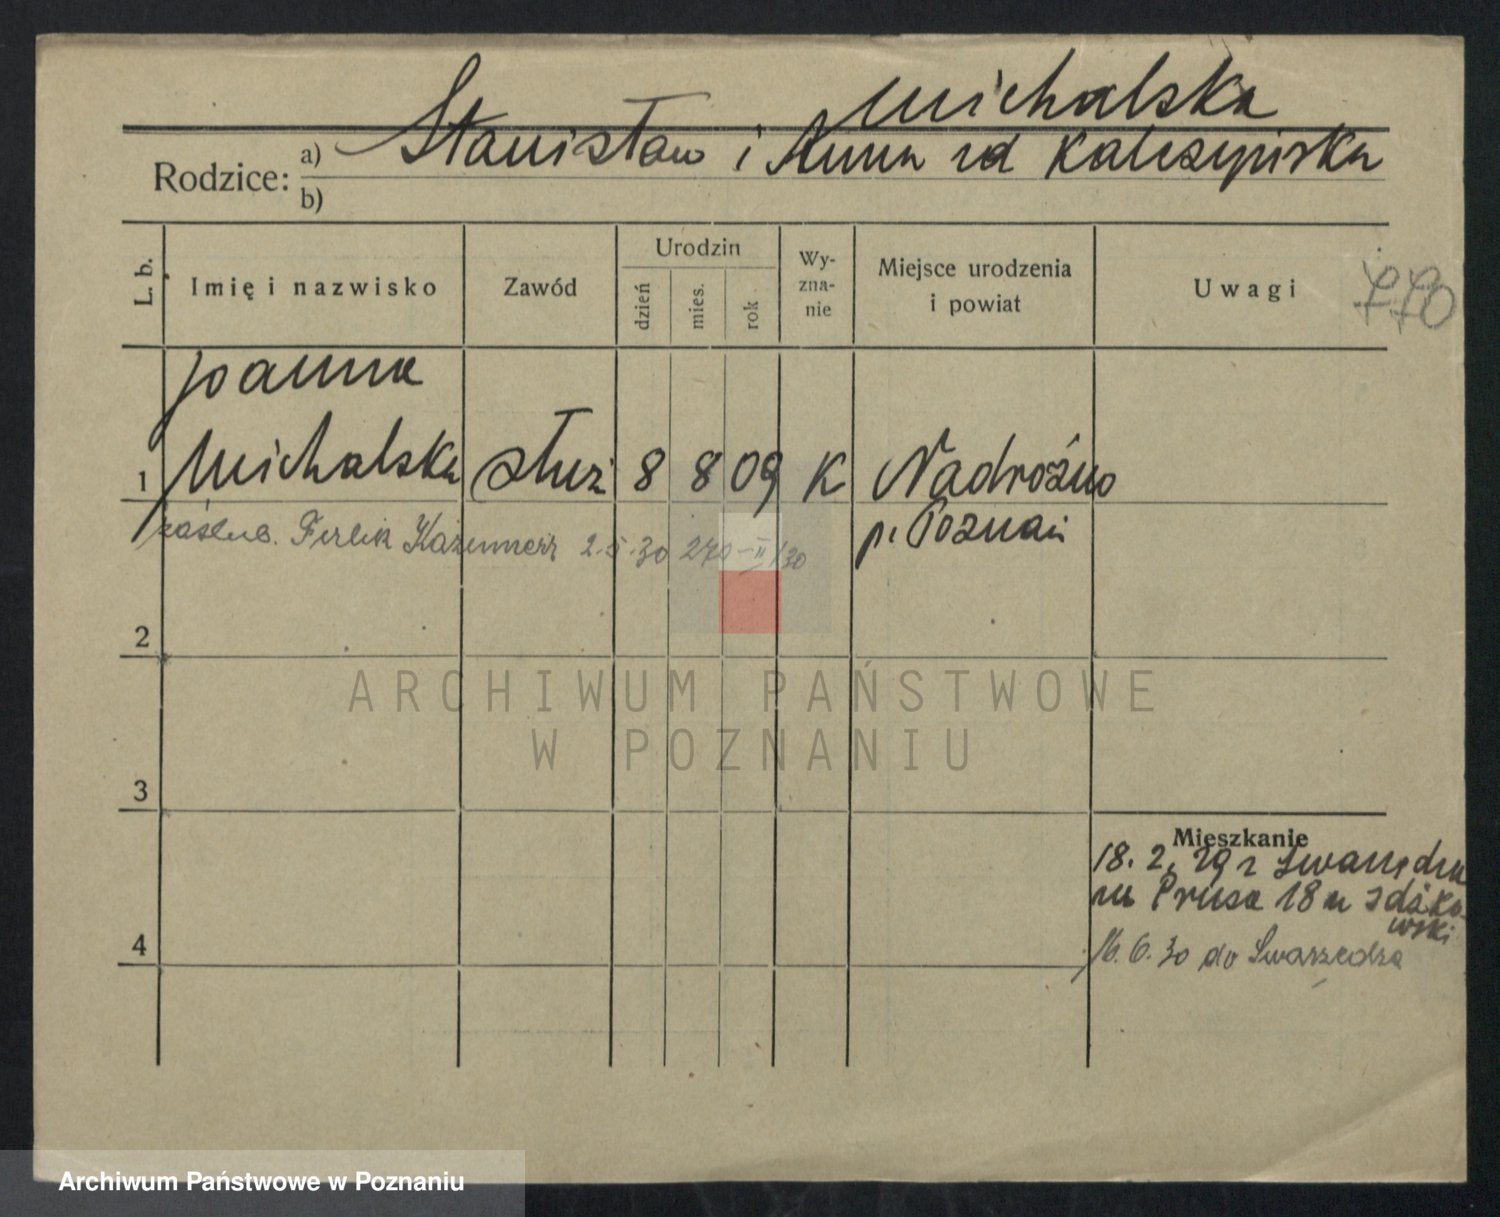 Michalska
Rodzice: a) Stanisław i Anna zd Kalczyńska
b)
L. b. Imię i nazwisko Zawód Urodzin dzień mies. rok Wy-zna-nie Miejsce urodzenia i powiat Uwagi 770
Joanna
1 Michalska służ 8 8 09 K Nadrożno
zaślub. Ferlik Kaźimierz 2.5.30 270-II/30 p. Poznań
2
ARCHIWUM PAŃSTWOWE
W POZNANIU
3
Mieszkanie
18.2.29 z Swarzędza
na Prusa 18 u
wski
4
16.6.30 do Swarzędza
Archiwum Państwowe w Poznaniu